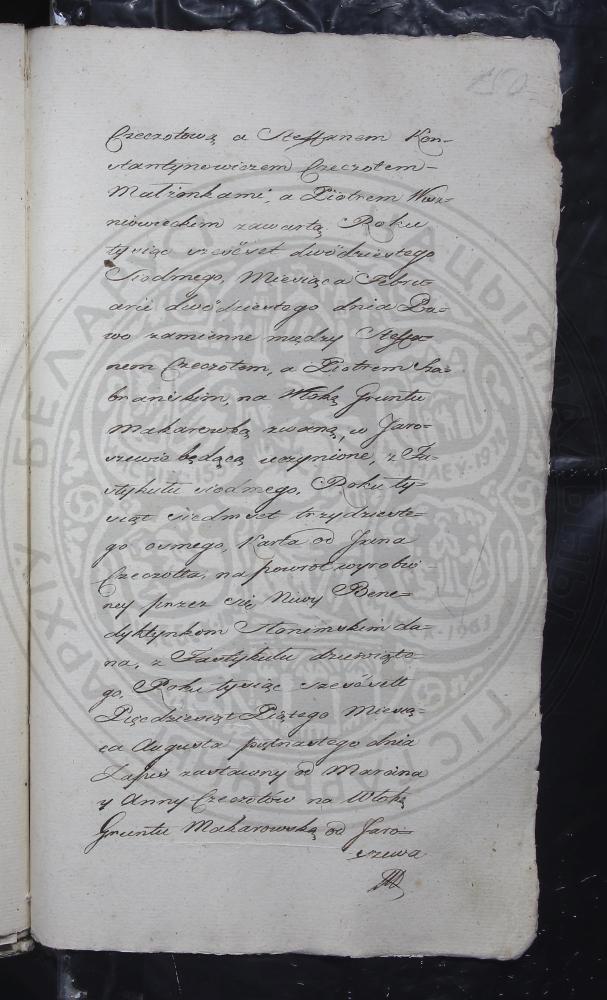 Czeczotową a Steffanem Kon-
stantynowiczem Czeczotem
Małżonkami, a Piotrem Wisz-
niowieckim zawartą. Roku
tysiąc sześćset dwódziestego
Siodmego, Miesiąca Febru-
arii dwódziestego dnia Pra-
wo zamienne między Steffa-
nem Czeczotem, a Piotrem
na Włokę Gruntu
Makarowską zwaną, w Jaro-
szewie będącą uczynione, z Fa-
scykułu siodmego, Roku ty-
siąc siedmset trzydzieste-
go osmego, Karta od Jana
Czeczotta, na powrot wyrobio-
ney przez się Niwy Bene-
dyktynkom Słonimskim da-
na, z Fascykułu dziewiąte-
go, Roku tysiąc sześćsett
Pięćdziesiąt Piątego Miesią-
ca Augusta piętnastego dnia
Zapis zastawny od Marcina
y Anny Czeczotów na Włokę
Gruntu Makarowską od Jaro-
szewa